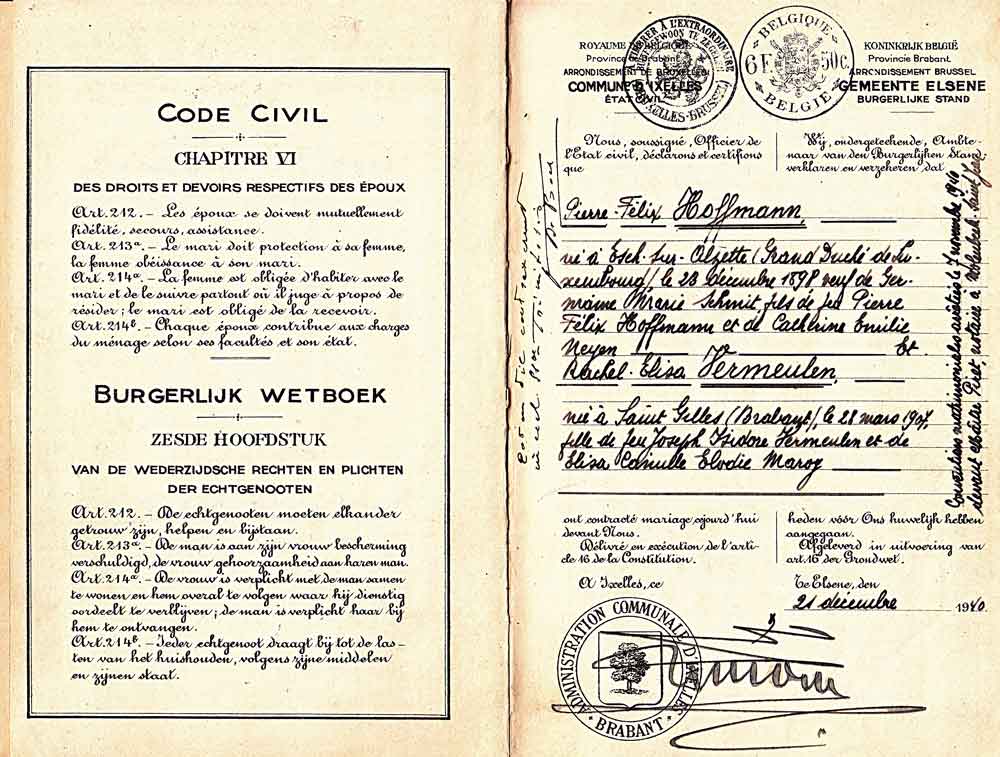 CODE CIVIL
CHAPITRE VI
DES DROITS ET DEVOIRS RESPECTIFS DES ÉPOUX
Art. 212. – Les époux se doivent mutuellement
fidélité, secours, assistance.
Art. 213ᵃ. – Le mari doit protection à sa femme,
la femme obéissance à son mari.
Art. 214ᵃ. – La femme est obligée d'habiter avec le
mari et de le suivre partout où il juge à propos de
résider ; le mari est obligé de la recevoir.
Art. 214ᵇ. – Chaque époux contribue aux charges
du ménage selon ses facultés et son état.
BURGERLIJK WETBOEK
ZESDE HOOFDSTUK
VAN DE WEDERZIJDSCHE RECHTEN EN PLICHTEN
DER ECHTGENOOTEN
Art. 212. – De echtgenooten moeten elkander
getrouw zijn, helpen en bijstaan.
Art. 213ᵃ. – De man is aan zijn vrouw bescherming
verschuldigd, de vrouw gehoorzaamheid aan haren man.
Art. 214ᵃ. – De vrouw is verplicht met de man samen
te wonen en hem overal te volgen waar hij dienstig
oordeelt te verblijven ; de man is verplicht haar bij
hem te ontvangen.
Art. 214ᵇ. – Ieder echtgenoot draagt bij tot de las-
ten van het huishouden, volgens zijne middelen
en zijnen staat.
ROYAUME DE BELGIQUE
Province Brabant
ARRONDISSEMENT DE BRUXELLES
COMMUNE D'IXELLES
ÉTAT CIVIL
A TIMBRER À L'EXTRAORDINAIRE
BRUXELLES-BRUSSEL
BELGIQUE
6F 50c.
BELGIE
KONINKRIJK BELGIË
Provincie Brabant
ARRONDISSEMENT BRUSSEL
GEMEENTE ELSENE
BURGERLIJKE STAND
Nous, soussigné, Officier de
l'État civil, déclarons et certifions
que
Wij, ondergeteekende, Ambte-
naar van den Burgerlijken Stand
verklaren en verzekeren dat
Pierre-Félix Hoffmann,
né à Esch-sur-Alzette (Grand Duché de Lu-
xembourg), le 23 décembre 1898 veuf de Ger-
maine Marie Schmit, fils de feu Pierre
Félix Hoffmann et de Catherine Emilie
Neyen Et
Rachel-Elisa Vermeulen,
née à Saint Gilles (Brabant), le 28 mars 1907,
fille de feu Joseph Isidore Vermeulen et de
Elisa Camille Elodie Maroy
Conventions matrimoniales arrêtées le novembre 1940
devant Maître Piret, notaire à
ont contracté mariage ce jourd'hui
devant Nous.
Délivré en exécution de l'arti-
cle 16 de la Constitution.
heden vóór Ons huwelijk hebben
aangegaan.
Afgeleverd in uitvoering van
art. 16 der Grondwet.
A Ixelles, ce
Te Elsene, den
21 décembre 1940.
ADMINISTRATION COMMUNALE D'IXELLES
BRABANT